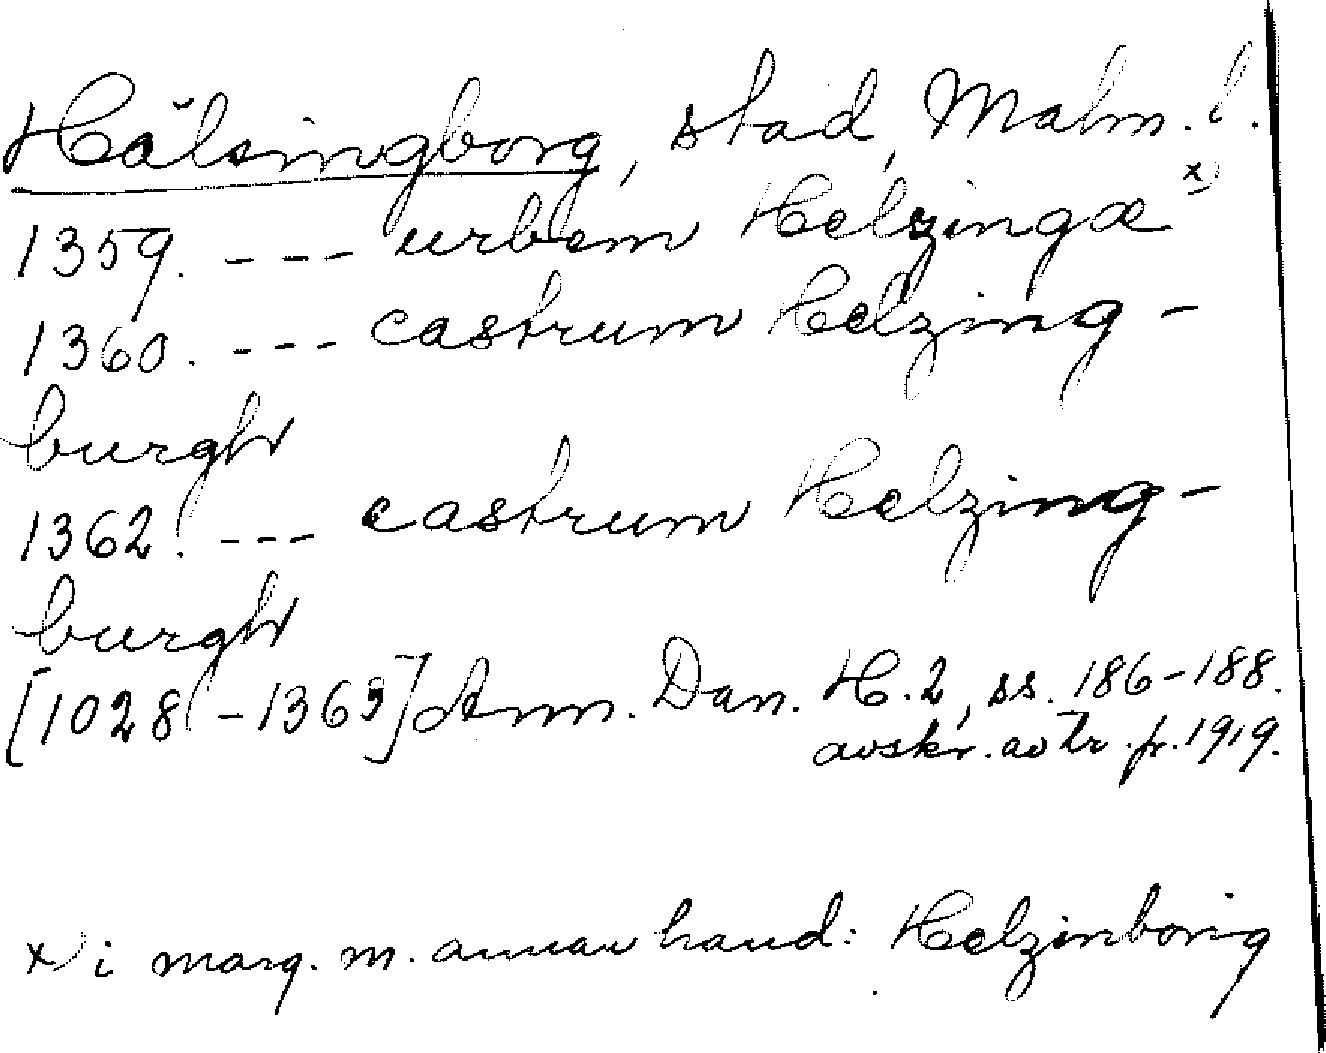 Hälsingborg, stad, Malm. l.
1359. --- urbem Helzingæ x)
1360. --- castrum Helzing-
burgh
1362. --- castrum Helzing-
burgh
[1028-1363] Ann. Dan. H. 2, ss. 186-188.
avskr. av tr. fr. 1919.
x) i marg. m. annan hand: Helzinborig